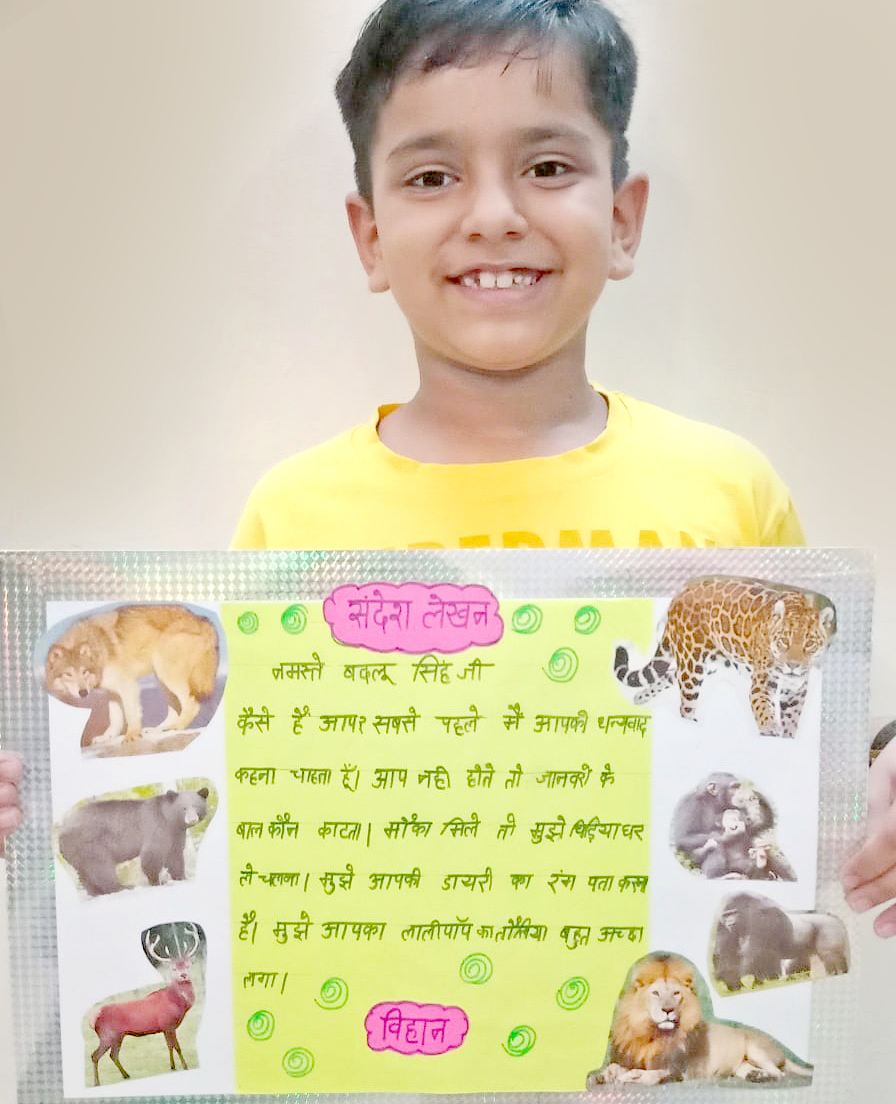 संदेश लेखन
नमस्ते बदलू सिंह जी
कैसे हैं आप? सबसे पहले मैं आपकी धन्यवाद
कहना चाहता हूँ। आप नही होते तो जानवरो के
बाल कौन काटता। मौका मिले तो मुझे चिड़ियाघर
ले चलना। मुझे आपकी डायरी का रंग पता करना
है। मुझे आपका लालीपॉप का तौलिया बहुत अच्छा
लगा।
विहान